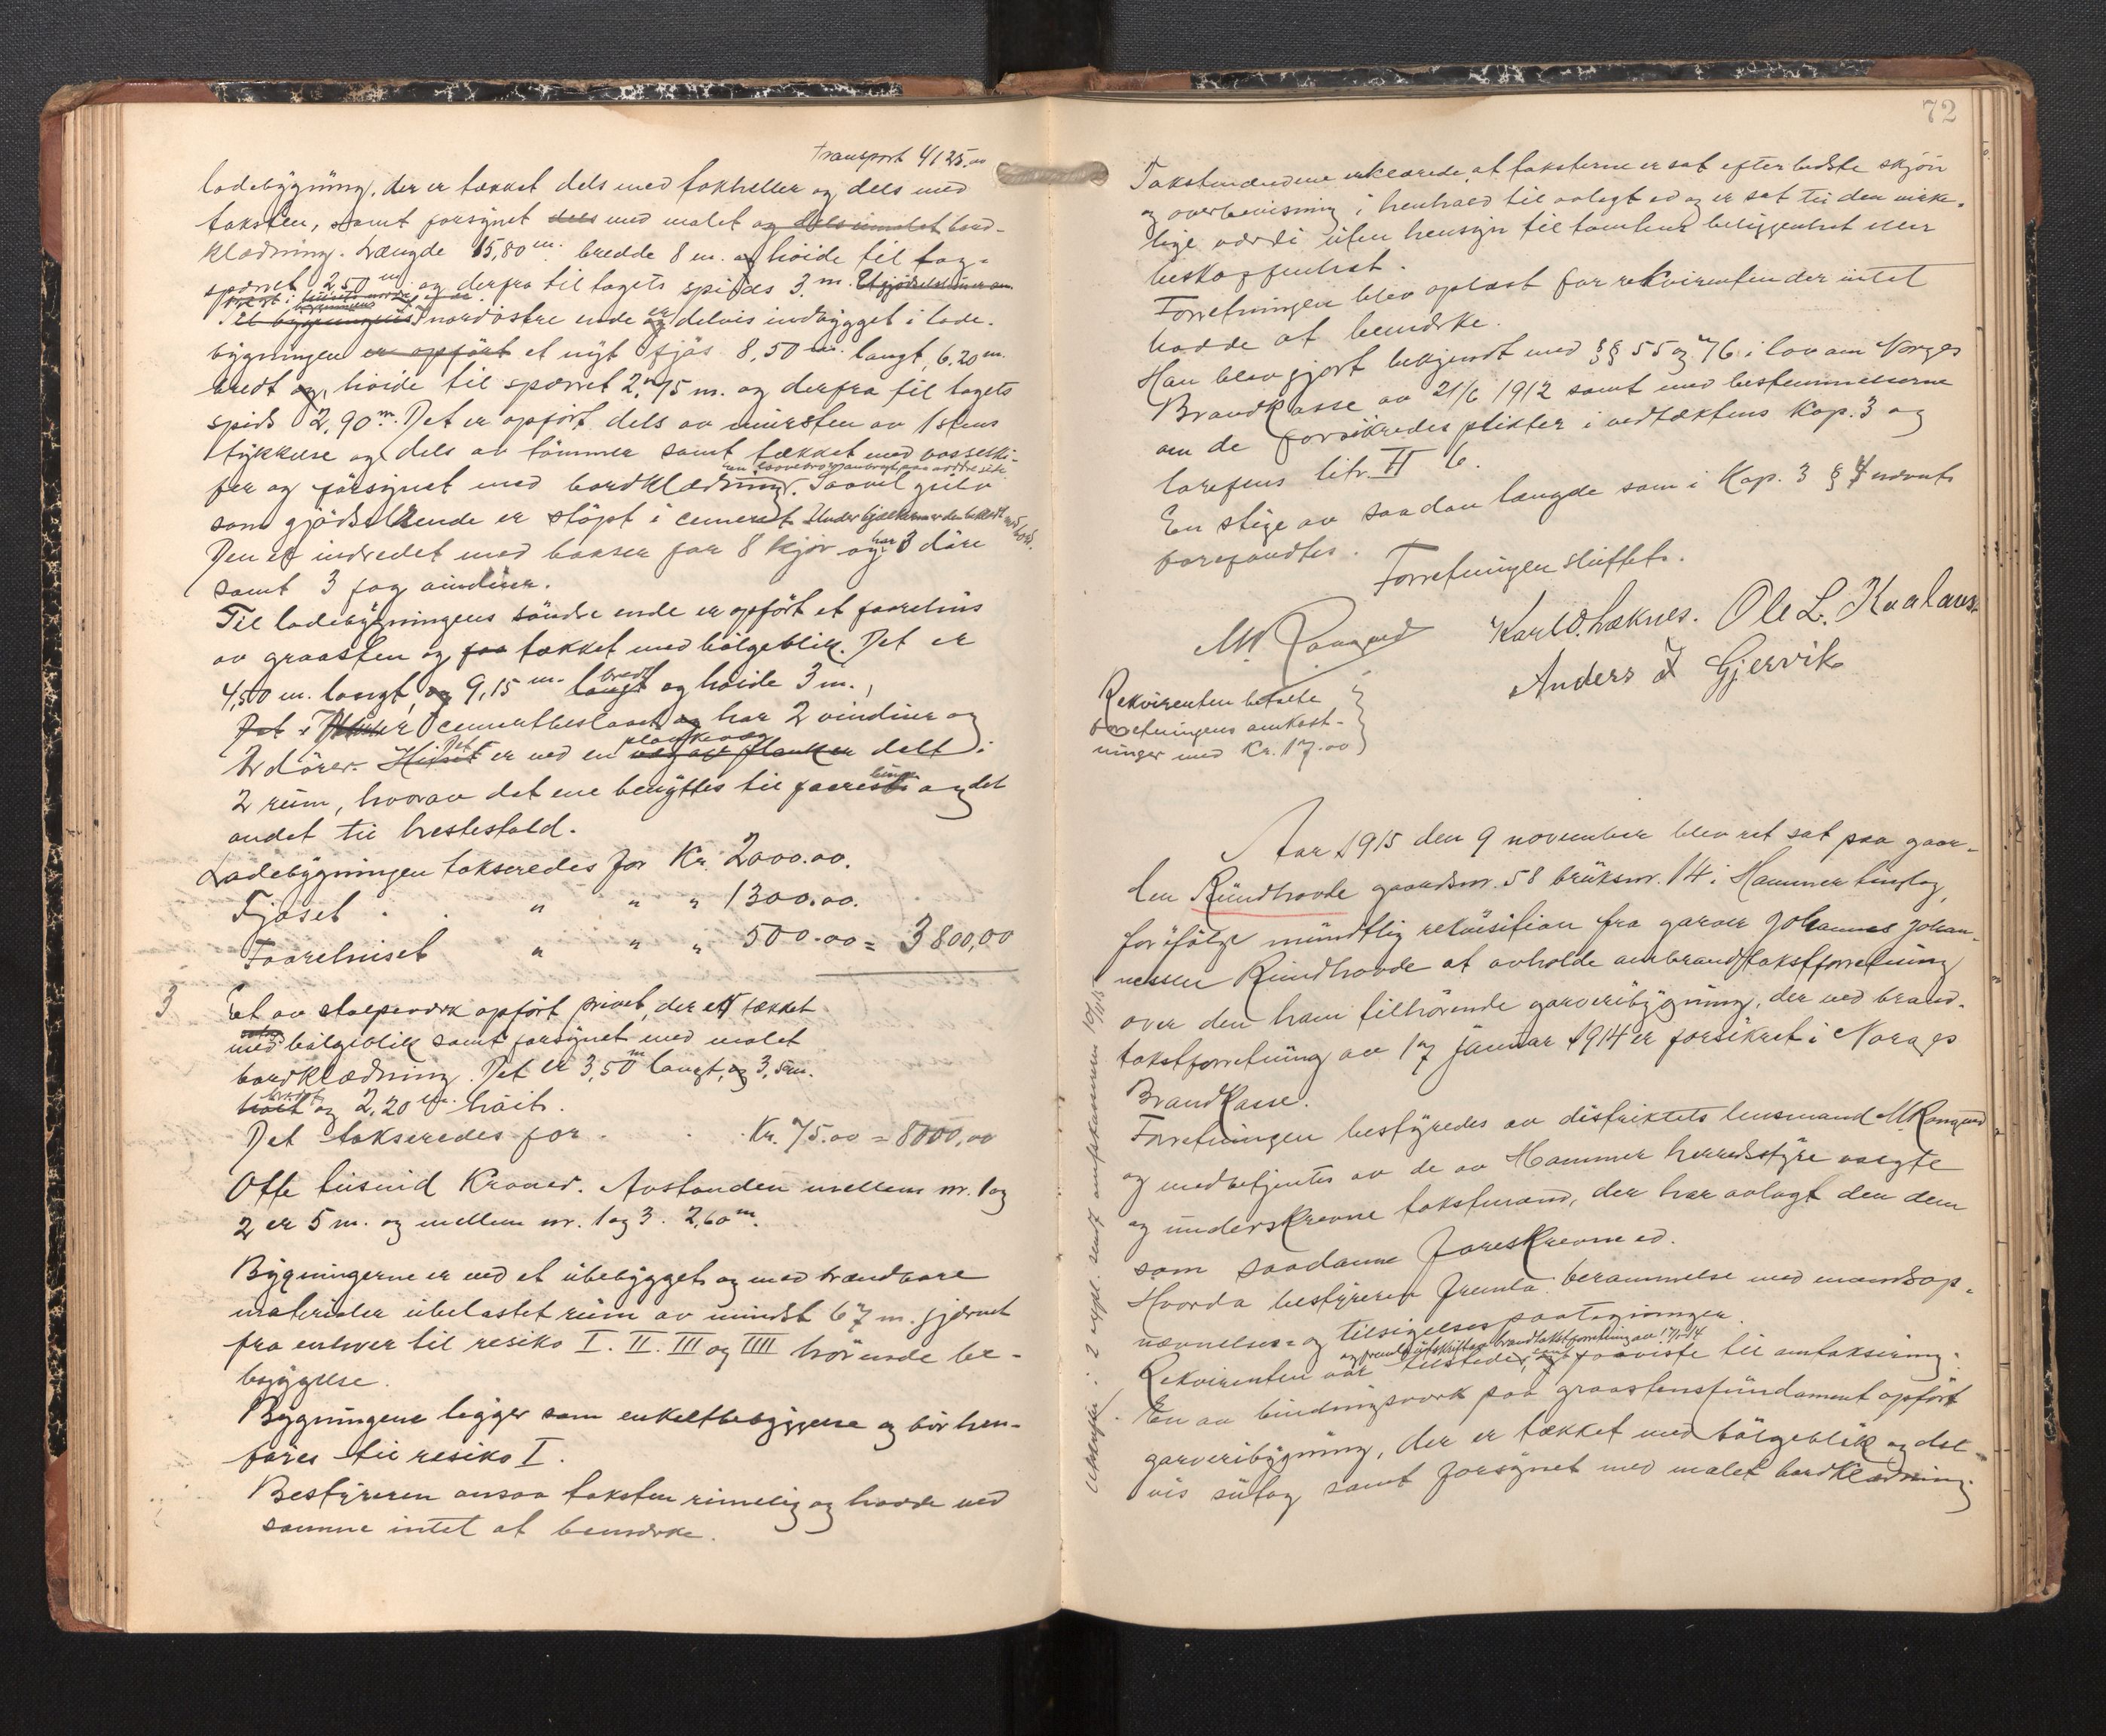 Transport 4125.00
ladebygning, der er tækket dels med takheller og dels med
taksten, samt forsynet dels med malet og dels umalet bord-
klædning. Længde 15,80 m. bredde 8 m. og høide til tag-
spærret 2,50 m og derfra til tagets spids 3 m.
Til bygningens nordøstre ende er delvis indbygget i lade-
bygningen er opført et nyt fjøs 8,50 m. langt, 6.20 m.
bredt og høide til spærret 2,75 m. og derfra til tagets
spids 2,90 m. Det er opført dels av mursten av 1 stens
tykkelse og dels av tømmer samt tækket med vosseski-
fer og forsynet med bordklædning. Saavel gulv
som gjødselkende er støpt i cement. Under bjælkerne er den beklædt med bord.
Den er indredet med baaser for 8 kjør og har 3 døre
samt 3 fag vinduer.
Til ladebygningens søndre ende er opført et faarehus
av graasten og faa tækket med bølgeblik. Det er
4,50 m. langt, og 9,15 m. langt bredt og høide 3 m.,
Det i cementbeslaaet og har 2 vinduer og
2 dører. Huset Det er ved en væg av planker plankevæg delt i
2 rum, hvorav det ene benyttes til faaresti og det
andet til hestestald.
Ladebygningen takseredes for Kr. 2000.00.
Fjøset . . " " " 1300.00.
Faarehuset " " " 500.00 = 3800,00
3 Et av stolpeverk opført privet, der er tækket
med bølgeblik samt forsynet med malet
bordklædning. Det er 3,50 m langt, og 3,5 m.
høit bredt og 2,20 m. høit.
Det takseredes for . . Kr. 75.00 = 8000,00
Otte tusind Kroner. Avstanden mellem nr. 1 og
2 er 5 m. og mellem nr. 1 og 3. 2,60 m.
Bygningerne er ved et ubebygget og med brændbare
materialer ubelastet rum av mindst 67 m. fjernet
fra enhver til resiko I. II. III og IIII hörende be-
byggelse.
Bygningene ligger som enkeltbebyggelse og bör hen-
føres til resiko I.
Bestyreren ansaa taksten rimelig og havde ved
samme intet at bemærke.
72
Takstmændene erklærede, at taksterne er sat efter bedste skjøn
og overbevisning i henhold til avlagt ed og er sat til den virke-
lige værdi uten hensyn til tomtens beliggenhet eller
beskaffenhet.
Forretningen blev oplæst for rekvirenten der intet
hadde at bemærke.
Han blev gjort bekjendt med §§ 55 og 76 i lov om Norges
Brandkasse av 21/6 1912 samt med bestemmelserne
om de forsikredes plikter i vedtæktens Kap. 3 og
tarifens litr. II 6.
En stige av saadan længde som i Kap. 3 § 4 nævnt
forefandtes.
Forretningen sluttet.
Karl O. Løknes. Ole L. Kvalavåg
Anders J Gjervik
Rekvirenten betalte
forretningens omkost-
ninger med Kr. 17.00
Aar 1915 den 9 november blev ret sat paa gaar-
den Rundhovde gaardsnr. 58 bruksnr. 14 i Hammer tinglag,
for ifølge mundtlig rekvisition fra garver Johannes Johan-
nessen Rundhovde at avholde ombrandtakstforretning
over den ham tilhørende garveribygning, der ved brand-
takstforretning av 17 januar 1914 er forsikret i Norges
Brandkasse.
Forretningen bestyredes av distriktets lensmand M. Rongved
og medbetjentes av de av Hammer herredsstyre valgte
og underskrevne takstmænd, der har avlagt den dem
som saadanne foreskrevne ed.
Hvorda bestyreren fremla berammelse med mandsop-
nævnelses- og tilsigelsespaategninger.
og fremla utskrift av brandtakstforretning av 17/1-14
Rekvirenten var tilstede, og paaviste til omtaksering:
En av bindingsverk paa graastensfundament opført
garveribygning, der er tækket med bølgeblik og del-
vis sutag samt forsynet med malet bordklædning
Utskrift i 2 expl. sendt amtskammeret 10/11 15